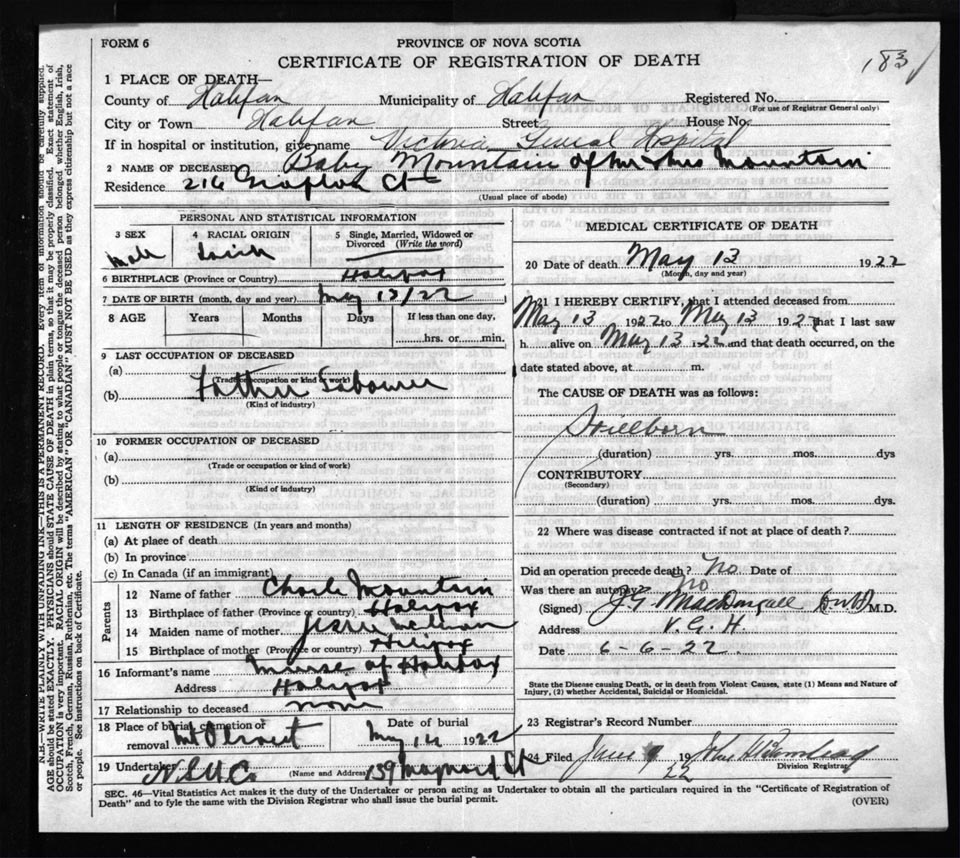 FORM 6
PROVINCE OF NOVA SCOTIA
CERTIFICATE OF REGISTRATION OF DEATH
183
1 PLACE OF DEATH—
County of Halifax Municipality of Halifax Registered No.
(For use of Registrar General only)
City or Town Halifax Street House No.
If in hospital or institution, give name Victoria General Hospital
2 NAME OF DECEASED Baby Mountain of Mr & Mrs Mountain
Residence 216 Grafton St
(Usual place of abode)
PERSONAL AND STATISTICAL INFORMATION
3 SEX Male
4 RACIAL ORIGIN Irish
5 Single, Married, Widowed or Divorced (Write the word)
6 BIRTHPLACE (Province or Country) Halifax
7 DATE OF BIRTH (month, day and year) May 13/22
8 AGE Years Months Days If less than one day,
hrs. or min.
9 LAST OCCUPATION OF DECEASED
(a)
(Trade or occupation or kind of work)
(b) Father Labourer
(Kind of industry)
10 FORMER OCCUPATION OF DECEASED
(a)
(Trade or occupation or kind of work)
(b)
(Kind of industry)
11 LENGTH OF RESIDENCE (In years and months)
(a) At place of death
(b) In province
(c) In Canada (if an immigrant)
Parents
12 Name of father Mountain
13 Birthplace of father (Province or country) Halifax
14 Maiden name of mother Jessie
15 Birthplace of mother (Province or country) Halifax
16 Informant's name Nurse of Halifax
Address Halifax
17 Relationship to deceased none
18 Place of burial, cremation or removal Mt Olivet
Date of burial May 14 1922
19 Undertaker N.S.U.Co.
(Name and Address) 139 Maynard St
MEDICAL CERTIFICATE OF DEATH
20 Date of death May 13 1922
(Month, day and year)
21 I HEREBY CERTIFY, that I attended deceased from
May 13 1922 to May 13 1922 that I last saw
h alive on May 13 22 and that death occurred, on the
date stated above, at m.
The CAUSE OF DEATH was as follows:
Stillborn
(duration) yrs. mos. dys
CONTRIBUTORY
(Secondary)
(duration) yrs. mos. dys.
22 Where was disease contracted if not at place of death?
Did an operation precede death? No Date of
Was there an autopsy? No
(Signed) MacDougall M.D.
Address V.G.H.
Date 6-6-22.
State the Disease causing Death, or in death from Violent Causes, state (1) Means and Nature of Injury, (2) whether Accidental, Suicidal or Homicidal.
23 Registrar's Record Number
24 Filed June 9 19 22 John
Division Registrar
SEC. 46—Vital Statistics Act makes it the duty of the Undertaker or person acting as Undertaker to obtain all the particulars required in the "Certificate of Registration of
Death" and to fyle the same with the Division Registrar who shall issue the burial permit.
(OVER)
N.B.—WRITE PLAINLY WITH UNFADING INK—THIS IS A PERMANENT RECORD. Every item of information should be carefully supplied.
AGE should be stated EXACTLY. PHYSICIANS should STATE CAUSE OF DEATH in plain terms, so that it may be properly classified. Exact statement of
OCCUPATION is very important. RACIAL ORIGIN will be described by stating to what people or tongue the deceased person belonged whether English, Irish,
Scotch, French, German, Russian, Ruthenian, etc. The terms "AMERICAN" OR "CANADIAN" MUST NOT BE USED as they express citizenship but not a race
or people. See instructions on back of Certificate.